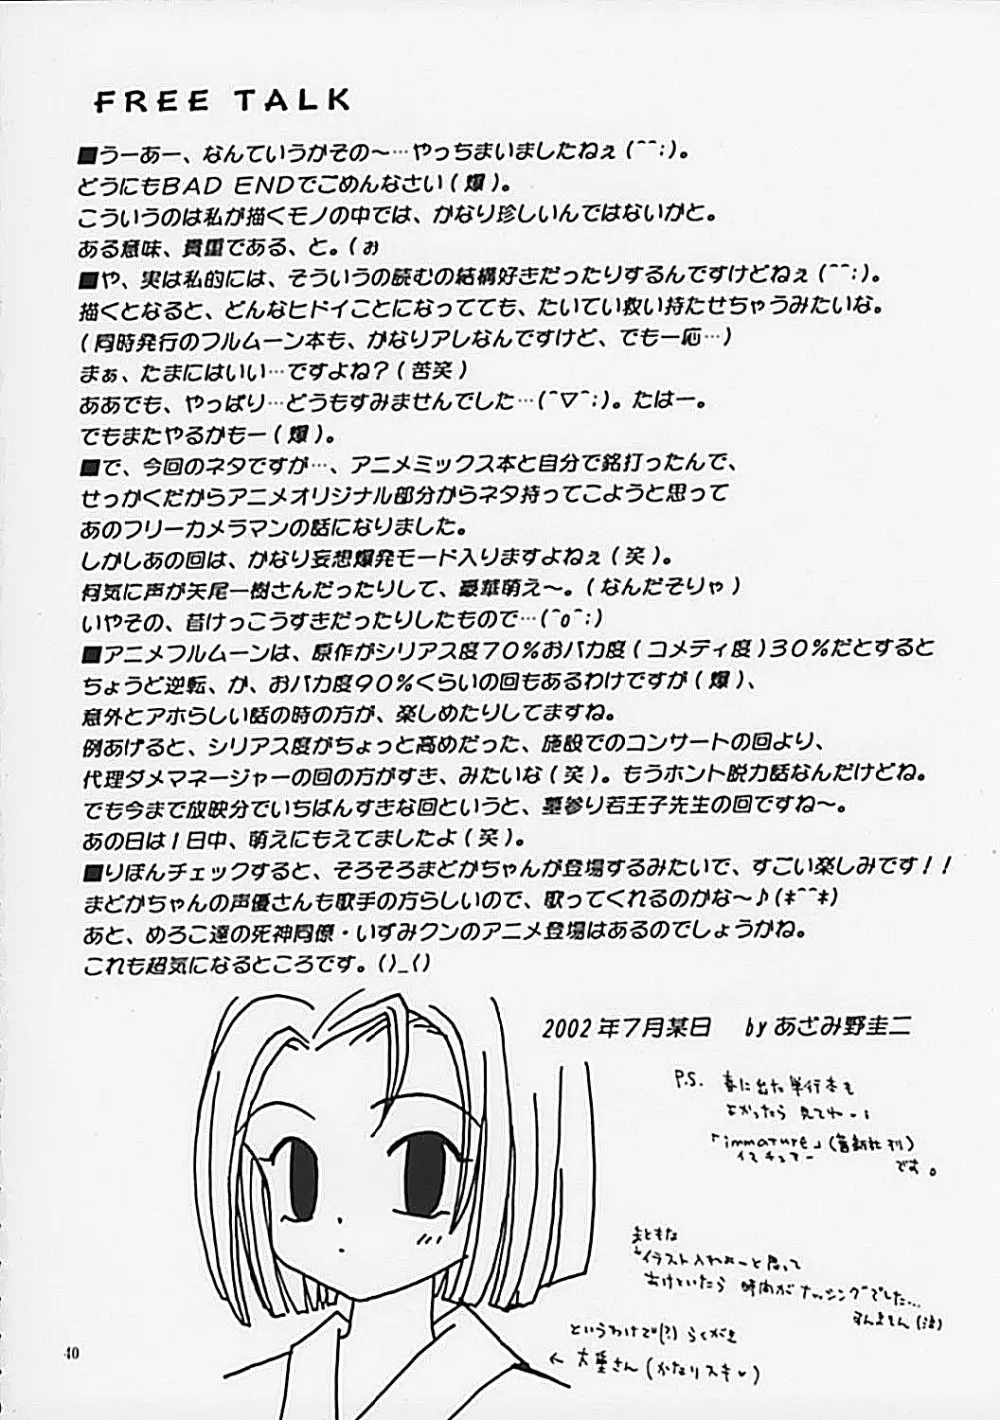 FREE TALK
■うーあー、なんていうかその～…やっちまいましたねぇ(^^;)。
どうにもBAD ENDでごめんなさい(爆)。
こういうのは私が描くモノの中では、かなり珍しいんではないかと。
ある意味、貴重である、と。(ぉ
■や、実は私的には、そういうの読むの結構好きだったりするんですけどねぇ(^^;)。
描くとなると、どんなヒドイことになってても、たいてい救い持たせちゃうみたいな。
(同時発行のフルムーン本も、かなりアレなんですけど、でも一応…)
まぁ、たまにはいい…ですよね?(苦笑)
ああでも、やっぱり…どうもすみませんでした…(^▽^;)。たはー。
でもまたやるかもー(爆)。
■で、今回のネタですが…、アニメミックス本と自分で銘打ったんで、
せっかくだからアニメオリジナル部分からネタ持ってこようと思って
あのフリーカメラマンの話になりました。
しかしあの回は、かなり妄想爆発モード入りますよねぇ(笑)。
何気に声が矢尾一樹さんだったりして、豪華萌え～。(なんだそりゃ)
いやその、昔けっこうすきだったりしたもので…(^o^;)
■アニメフルムーンは、原作がシリアス度70%おバカ度(コメディ度)30%だとすると
ちょうど逆転、か、おバカ度90%くらいの回もあるわけですが(爆)、
意外とアホらしい話の時の方が、楽しめたりしてますね。
例あげると、シリアス度がちょっと高めだった、施設でのコンサートの回より、
代理ダメマネージャーの回の方がすき、みたいな(笑)。もうホント脱力話なんだけどね。
でも今まで放映分でいちばんすきな回というと、墓参り若王子先生の回ですね～。
あの日は1日中、萌えにもえてましたよ(笑)。
■りぼんチェックすると、そろそろまどかちゃんが登場するみたいで、すごい楽しみです!!
まどかちゃんの声優さんも歌手の方らしいので、歌ってくれるのかな～♪(*^^*)
あと、めろこ達の死神同僚・いずみクンのアニメ登場はあるのでしょうかね。
これも超気になるところです。()_()
2002年7月某日 by あざみ野圭二
P.S. 春に出た単行本も
よかったら見てねー!
「immature」(富士美社刊)
イマチュアー です。
まともな
イラスト入れよーと思って
あけといたら 時間がナッシングでした…
すんません(泣)
というわけで(?) らくがき
← 大重さん(かなりスキ♥)
40